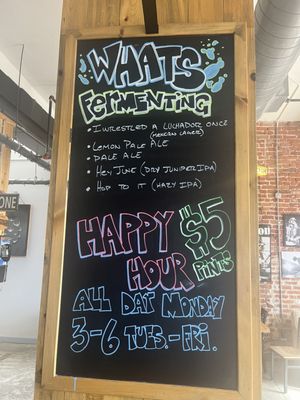 WHATS
FERMENTING
• I WRESTLED A LUCHADOR ONCE
(MEXICAN LAGER)
• LEMON PALE ALE
• DALE ALE
• HEY JUNE (DRY JUNIPER IPA)
• HOP TO IT (HAZY IPA)
HAPPY
HOUR
$5
PINTS
ALL DAY MONDAY
3-6 TUES.-FRI.